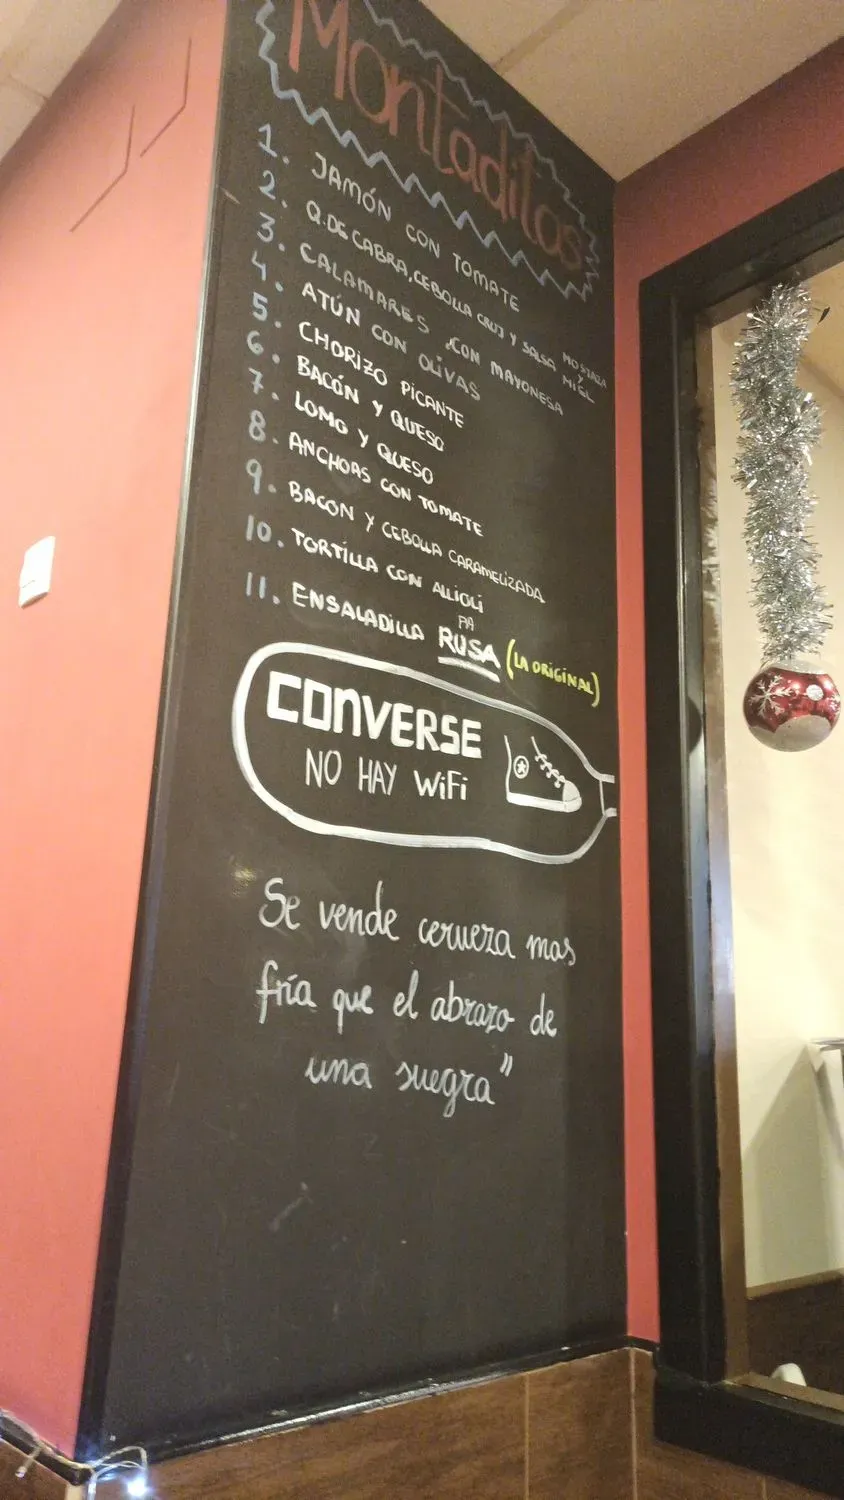 Montaditos
1. JAMÓN CON TOMATE
2. Q. DE CABRA, CEBOLLA CRUJ Y SALSA MIEL Y MOSTAZA
3. CALAMARES CON MAYONESA
4. ATÚN CON OLIVAS
5. CHORIZO PICANTE
6. BACÓN Y QUESO
7. LOMO Y QUESO
8. ANCHOAS CON TOMATE
9. BACON Y CEBOLLA CARAMELIZADA
10. TORTILLA CON ALLIOLI
11. ENSALADILLA RUSA (LA ORIGINAL)
CONVERSE
NO HAY WiFi
Se vende cerveza mas
fría que el abrazo de
una suegra"